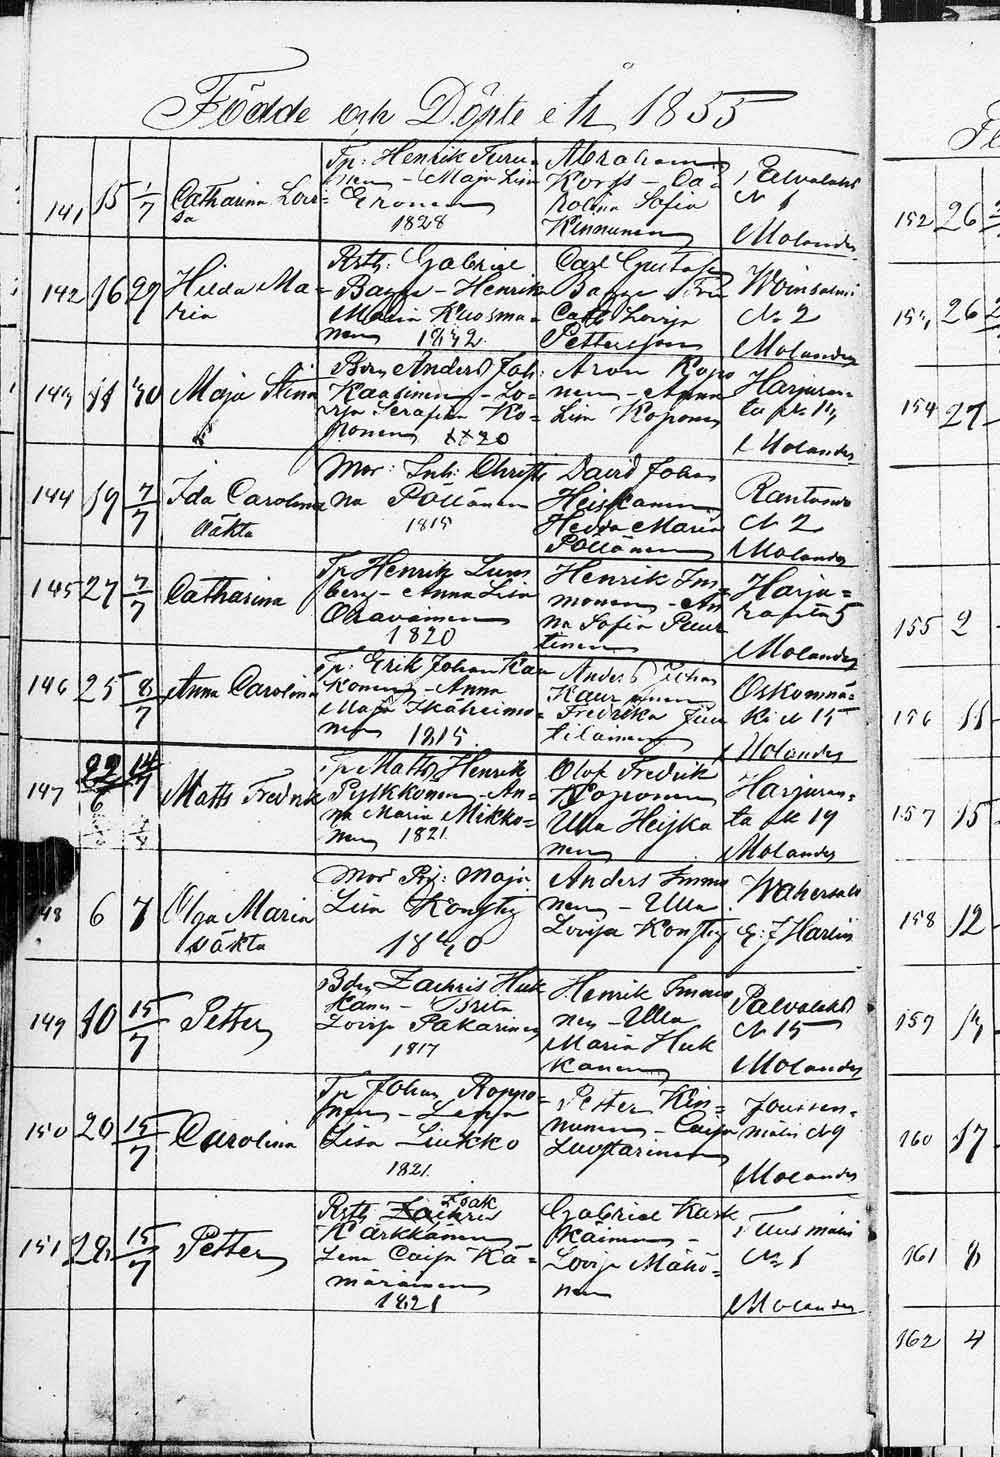 Födde och Döpte År 1855
141 15 1/7 Catharina Lovi=
sa
Tp: Henrik Turu=
nen - Maja Lisa
Eronen
1828
Abraham
Korps - Ca=
rolina Sofia
Kinnunen
Palvalaks
N 1
Molander
142 16 29 Hilda Ma=
ria
Rsth: Gabriel
Bagge - Henrika
Maria Kuosma=
nen 1832
Carl Gustaf
Bagge Fru
Cath Lovisa
Pettersson
Woinsalmi
No 2
Molander
143 11 30 Maja Stina
Bdn Anders Joh:
Kaasinen - Lo=
visa Serafia Ko=
ponen 1820
Aron Kopo
nen - Anna
Lisa Koponen
Harjuran=
ta
Molander
144 19 7/7 Ida Carolina
oäkta
Mor: Inh: Christi
na Pöllänen
1815
David Johan
Heiskanen
Hedda Maria
Pöllänen
Rantasalo
N 2
Molander
145 27 7/7 Catharina
Tp Henrik Lund
berg - Anna Lisa
Oravainen
1820
Henrik Im=
monen - An
na Sofia Puur
tinen
Harju=
ranta 5
Molander
146 25 8/7 Anna Carolina
Tp: Erik Johan Kau
konen - Anna
Maja Ikäheimo=
nen 1815
Anders Johan
Kaur
Fredrika Juu
tilainen
Oskomnä=
ki N 15
Molander
147 22/6 14/7 Matts Fredrik
Tp Matts Henrik
Pylkkönen - An=
na Maria Mikko=
nen 1821
Olof Fredrik
Koponen
Ulla Heiska
nen
Harjuran=
ta N 19
Molander
148 6 7 Olga Maria
oäkta
Mor Pig: Maja
Lisa Konsti
1830
Anders Immo
nen - Ulla
Lovisa Konsti
Wahersalo
G: J Harlin
149 10 15/7 Petter
Bdn Zachris Huk
kanen - Brita
Lovisa Pakarinen
1817
Henrik Immo
nen - Ulla
Maria Huk
kanen
Palvalaks
N 15
Molander
150 20 15/7 Carolina
Tp Johan Roppo=
nen - Leena
Lisa Liukko
1821
Petter Kin=
nunen - Caisa
Luostarinen
Joussen=
mäki N 9
Molander
151 28 15/7 Petter
Isak
Rsth Zachris
Karkkänen
Lena Caisa Kä=
märäinen
1821
Gabriel Kark
käinen -
Lovisa Mähö=
nen
Tuusmäki
No 1
Molander
152 26
26
154 27
155 2
156 11
157 15
158 12
159
160 17
161 8
162 4